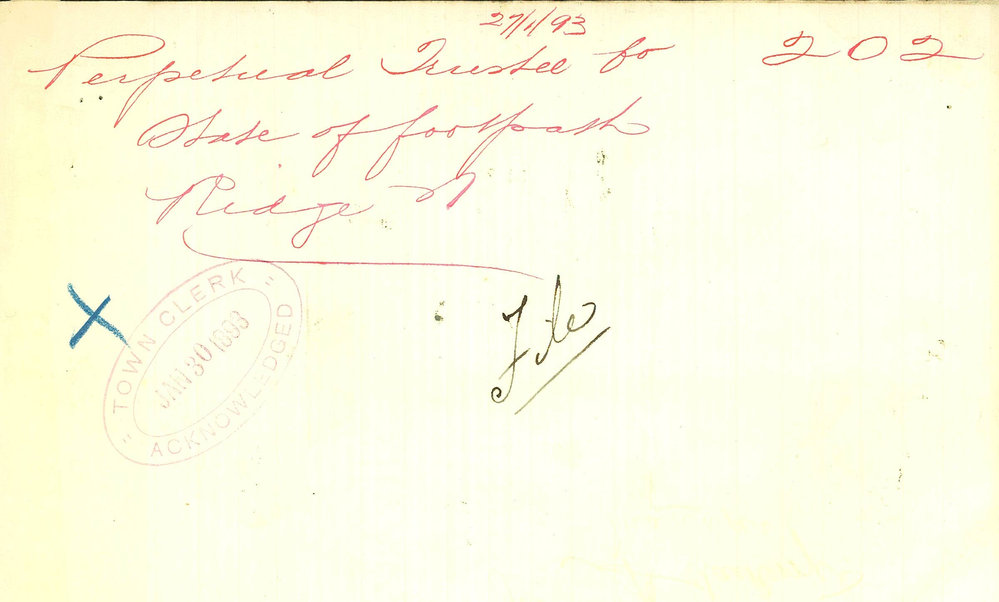 27/1/93
Perpetual Trustee Co 202
State of footpath
Ridge St
TOWN CLERK
JAN 30 1893
ACKNOWLEDGED
File